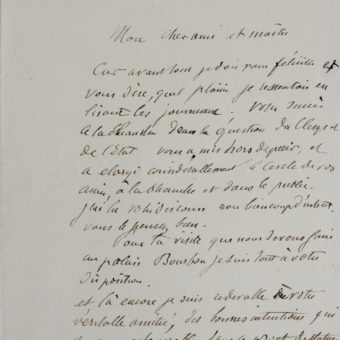 Mon cher ami et maître
Car avant tout je dois vous féliciter et
vous dire, quel plaisir je ressentais en
lisant les journaux votre succès
à la Chambre dans la question du Clergé et
de l'Etat vous a mis hors de pair, et
a élargi considérablement le cercle de vos
amis, à la Chambre et dans le public.
J'ai lu votre discours avec beaucoup d'intérêt
vous le pensez bien.
Pour la visite que nous devons faire
au palais Bourbon je suis tout à votre
disposition.
et là encore je suis redevable à votre
véritable amitié, des bonnes intentions qui